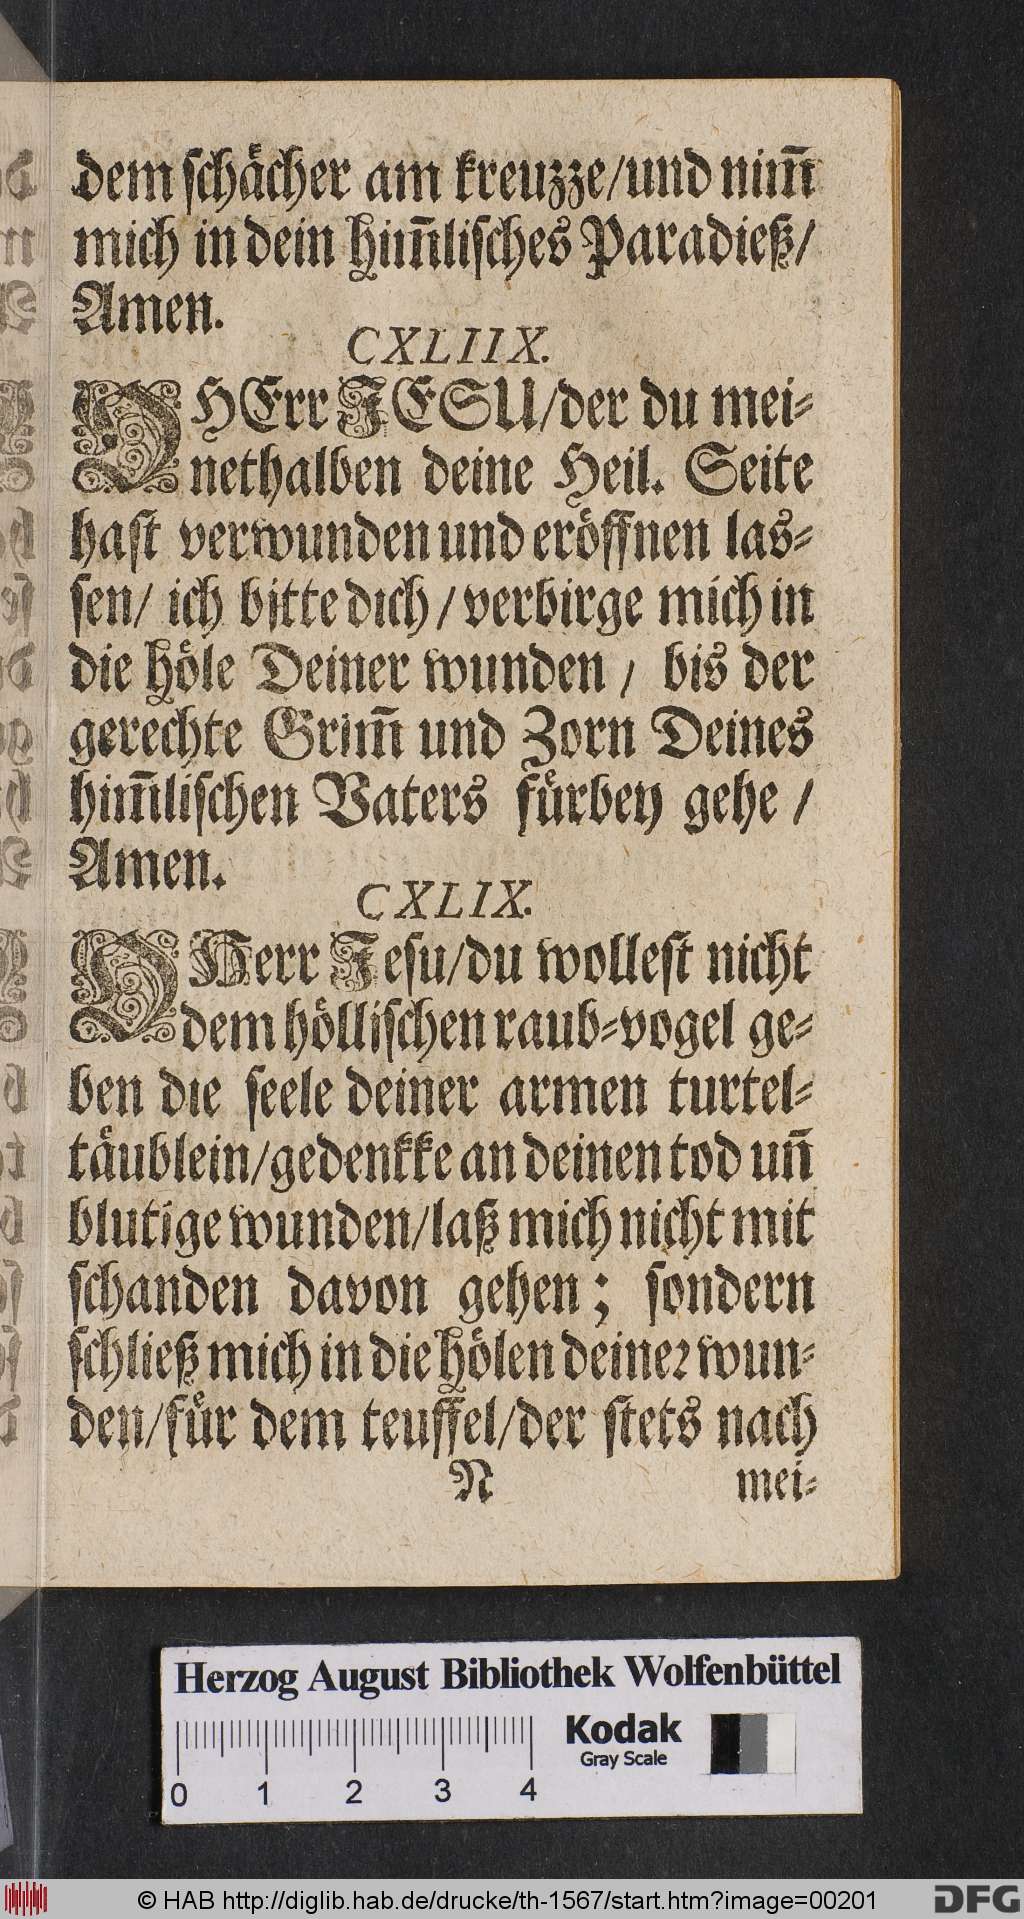 dem schaͤcher am kreuzze/und nim̃
mich in dein him̃lisches Paradieß/
Amen.
CXLIIX.
O HErr JESU/der du mei-
nethalben deine Heil. Seite
hast verwunden und eroͤffnen las-
sen/ ich bitte dich/ verbirge mich in
die hoͤle Deiner wunden/ bis der
gerechte Grim̃ und Zorn Deines
him̃lischen Vaters fuͤrbey gehe/
Amen.
CXLIX.
O Herr Jesu/du wollest nicht
dem hoͤllischen raub-vogel ge-
ben die seele deiner armen turtel-
taͤublein/gedenkke an deinen tod uñ
blutige wunden/laß mich nicht mit
schanden davon gehen; sondern
schließ mich in die hoͤlen deiner wun-
den/fuͤr dem teuffel/der stets nach
N mei-
Herzog August Bibliothek Wolfenbüttel
Kodak
Gray Scale
0 1 2 3 4
© HAB http://diglib.hab.de/drucke/th-1567/start.htm?image=00201
DFG